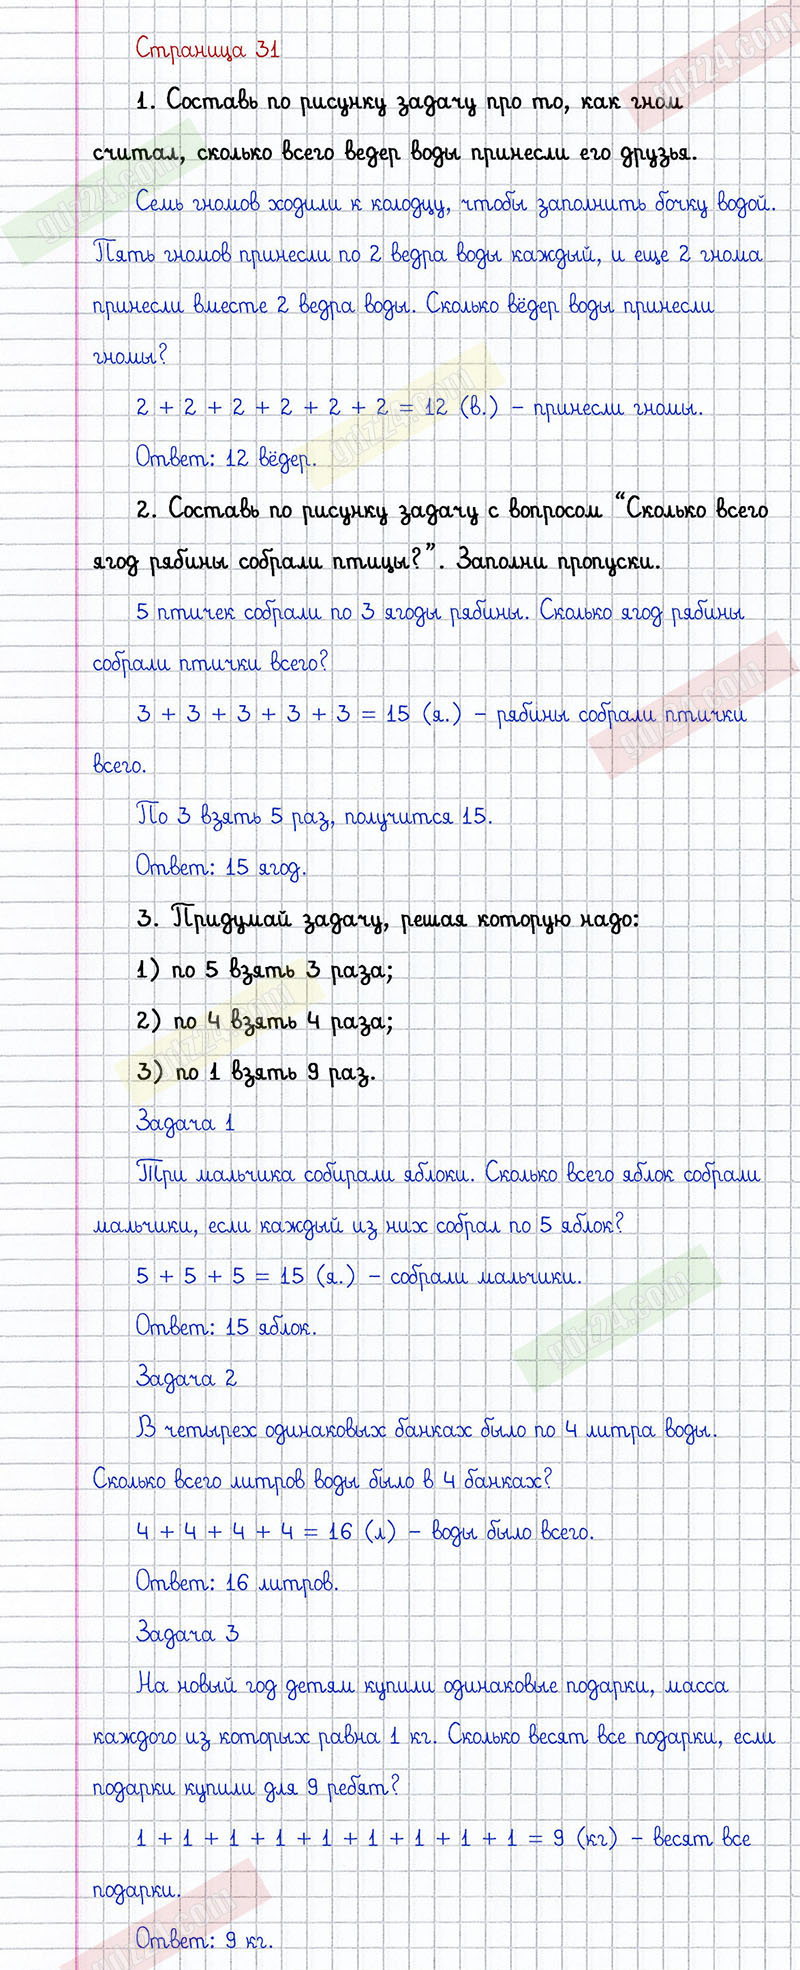 Страница 31
1. Составь по рисунку задачу про то, как гном
считал, сколько всего ведер воды принесли его друзья.
Семь гномов ходили к колодцу, чтобы заполнить бочку водой.
Пять гномов принесли по 2 ведра воды каждый, и еще 2 гнома
принесли вместе 2 ведра воды. Сколько вёдер воды принесли
гномы?
2 + 2 + 2 + 2 + 2 + 2 = 12 (в.) – принесли гномы.
Ответ: 12 вёдер.
2. Составь по рисунку задачу с вопросом “Сколько всего
ягод рябины собрали птицы?”. Заполни пропуски.
5 птичек собрали по 3 ягоды рябины. Сколько ягод рябины
собрали птички всего?
3 + 3 + 3 + 3 + 3 = 15 (я.) – рябины собрали птички
всего.
По 3 взять 5 раз, получится 15.
Ответ: 15 ягод.
3. Придумай задачу, решая которую надо:
1) по 5 взять 3 раза;
2) по 4 взять 4 раза;
3) по 1 взять 9 раз.
Задача 1
Три мальчика собирали яблоки. Сколько всего яблок собрали
мальчики, если каждый из них собрал по 5 яблок?
5 + 5 + 5 = 15 (я.) – собрали мальчики.
Ответ: 15 яблок.
Задача 2
В четырех одинаковых банках было по 4 литра воды.
Сколько всего литров воды было в 4 банках?
4 + 4 + 4 + 4 = 16 (л) – воды было всего.
Ответ: 16 литров.
Задача 3
На новый год детям купили одинаковые подарки, масса
каждого из которых равна 1 кг. Сколько весят все подарки, если
подарки купили для 9 ребят?
1 + 1 + 1 + 1 + 1 + 1 + 1 + 1 + 1 = 9 (кг) – весят все
подарки.
Ответ: 9 кг.
gdz24.com
gdz24.com
gdz24.com
gdz24.com
gdz24.com
gdz24.com
gdz24.com